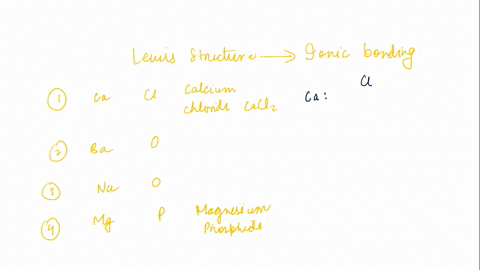 Lewis Structure → Ionic bonding
① Ca Cl Calcium chloride CaCl₂ Ca: Cl
② Ba O
③ Na O
④ Mg P Magnesium Phosphide